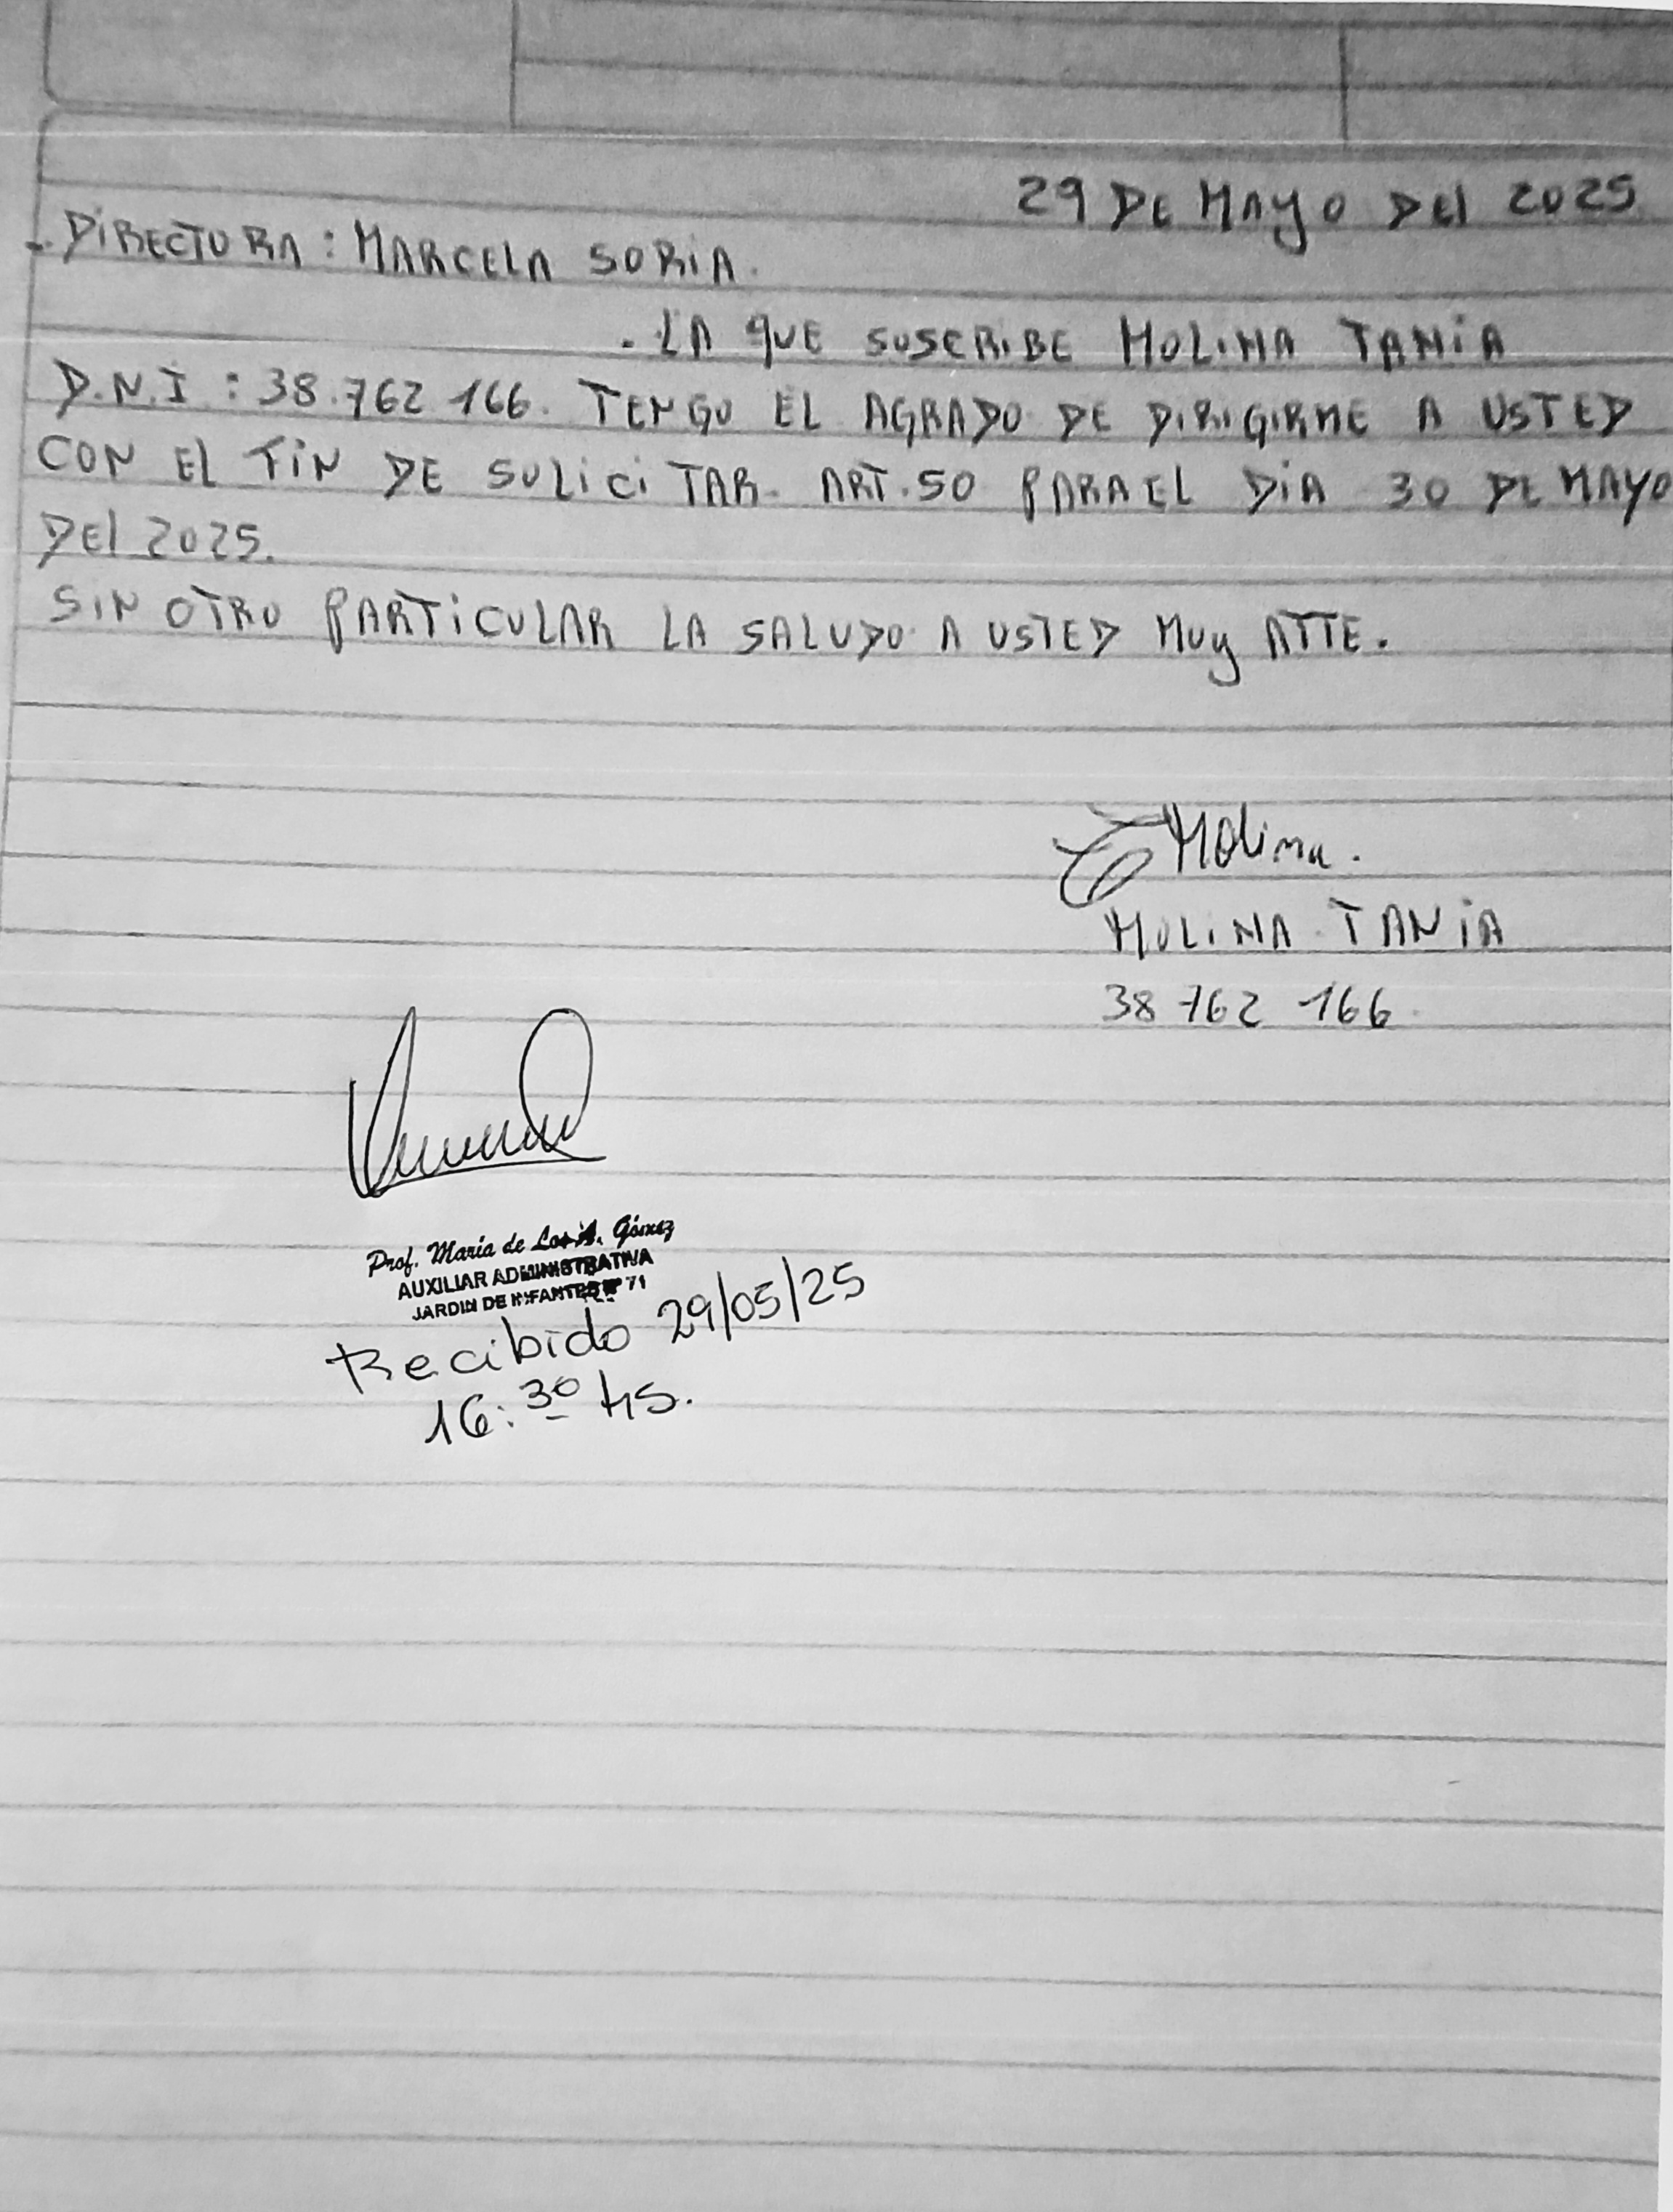 29 DE MAYO DEl 2025
- DIRECTORA: MARCELA SORIA.
. LA QUE SUSCRIBE MOLINA TANIA
D.N.I : 38.762 166. TENGO EL AGRADO DE DIRIGIRME A USTED
CON EL FIN DE SOLICITAR. ART.50 PARA EL DIA 30 DE MAYO
DEl 2025.
SIN OTRO PARTICULAR LA SALUDO A USTED MUY ATTE.
Molina.
MOLINA TANIA
38 762 166.
Prof. María de Los A. Gómez
AUXILIAR ADMINISTRATIVA
JARDIN DE INFANTES Nº 71
Recibido 29/05/25
16:30 hs.